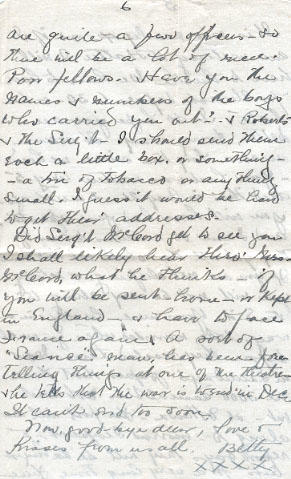 6
are quite a few officers - so
there will be a lot of
Poor fellows. Have you the
names & numbers of the boys
who carried you out? - & Roberts
& the Serg't - I should send them
each a little box, or something -
- a tin of tobacco or anything
small. I guess it would be hard
to get their addresses.
Did Serg't McCord get to see you
I shall likely hear thro' Miss
McCord, what he thinks - if
you will be sent home - or kept
in England - & have to face
France again & A sort of
"Seance" man, has been fore
telling things at one of the theatres
& he tells that the war is to end in Dec
It can't end too soon,
Now, good-bye dear, love &
Kisses from us all. Betty
X X X X